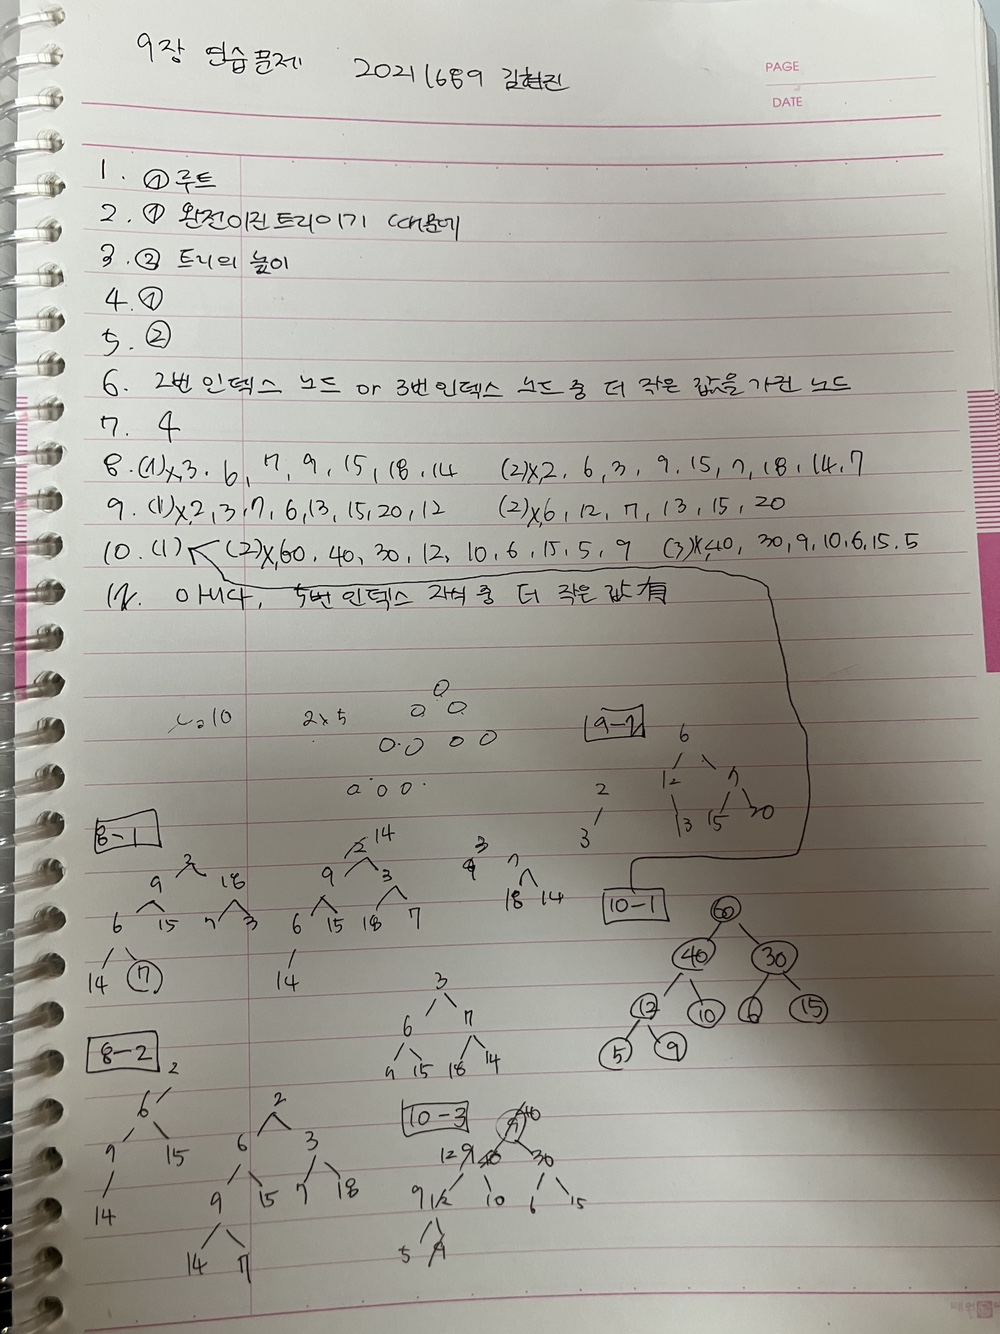 9장 연습문제 2021 1689 김현진
PAGE
DATE
1. ① 루트
2. ① 완전이진트리이기 때문에
3. ② 트리의 높이
4. ①
5. ②
6. 2번 인덱스 노드 or 3번 인덱스 노드 중 더 작은 값을 가진 노드
7. 4
8. (1) x, 3, 6, 7, 9, 15, 18, 14 (2) x, 2, 6, 3, 9, 15, 7, 18, 14, 7
9. (1) x, 2, 3, 7, 6, 13, 15, 20, 12 (2) x, 6, 12, 7, 13, 15, 20
10. (1) (2) x, 60, 40, 30, 12, 10, 6, 15, 5, 9 (3) x, 40, 30, 9, 10, 6, 15, 5
12. 아니다, 5번 인덱스 자식 중 더 작은 값 有
2x5
9-2
6
12 7
13 15 20
2
3
8-1
2
9 18
6 15 7 3
14 7
14
9 3
6 15 18 7
14
3
7
18 14
10-1
60
40 30
12 10 6 15
5 9
3
6 7
9 15 18 14
8-2
2
6
9 15
14
2
6 3
9 15 7 18
14 7
10-3
40
12 9 40 30
9 12 10 6 15
5 9